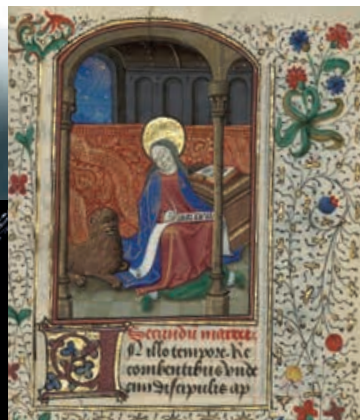 Secundu marcu
N illo tempore. Re
combentibus unde
cim discipulis ap